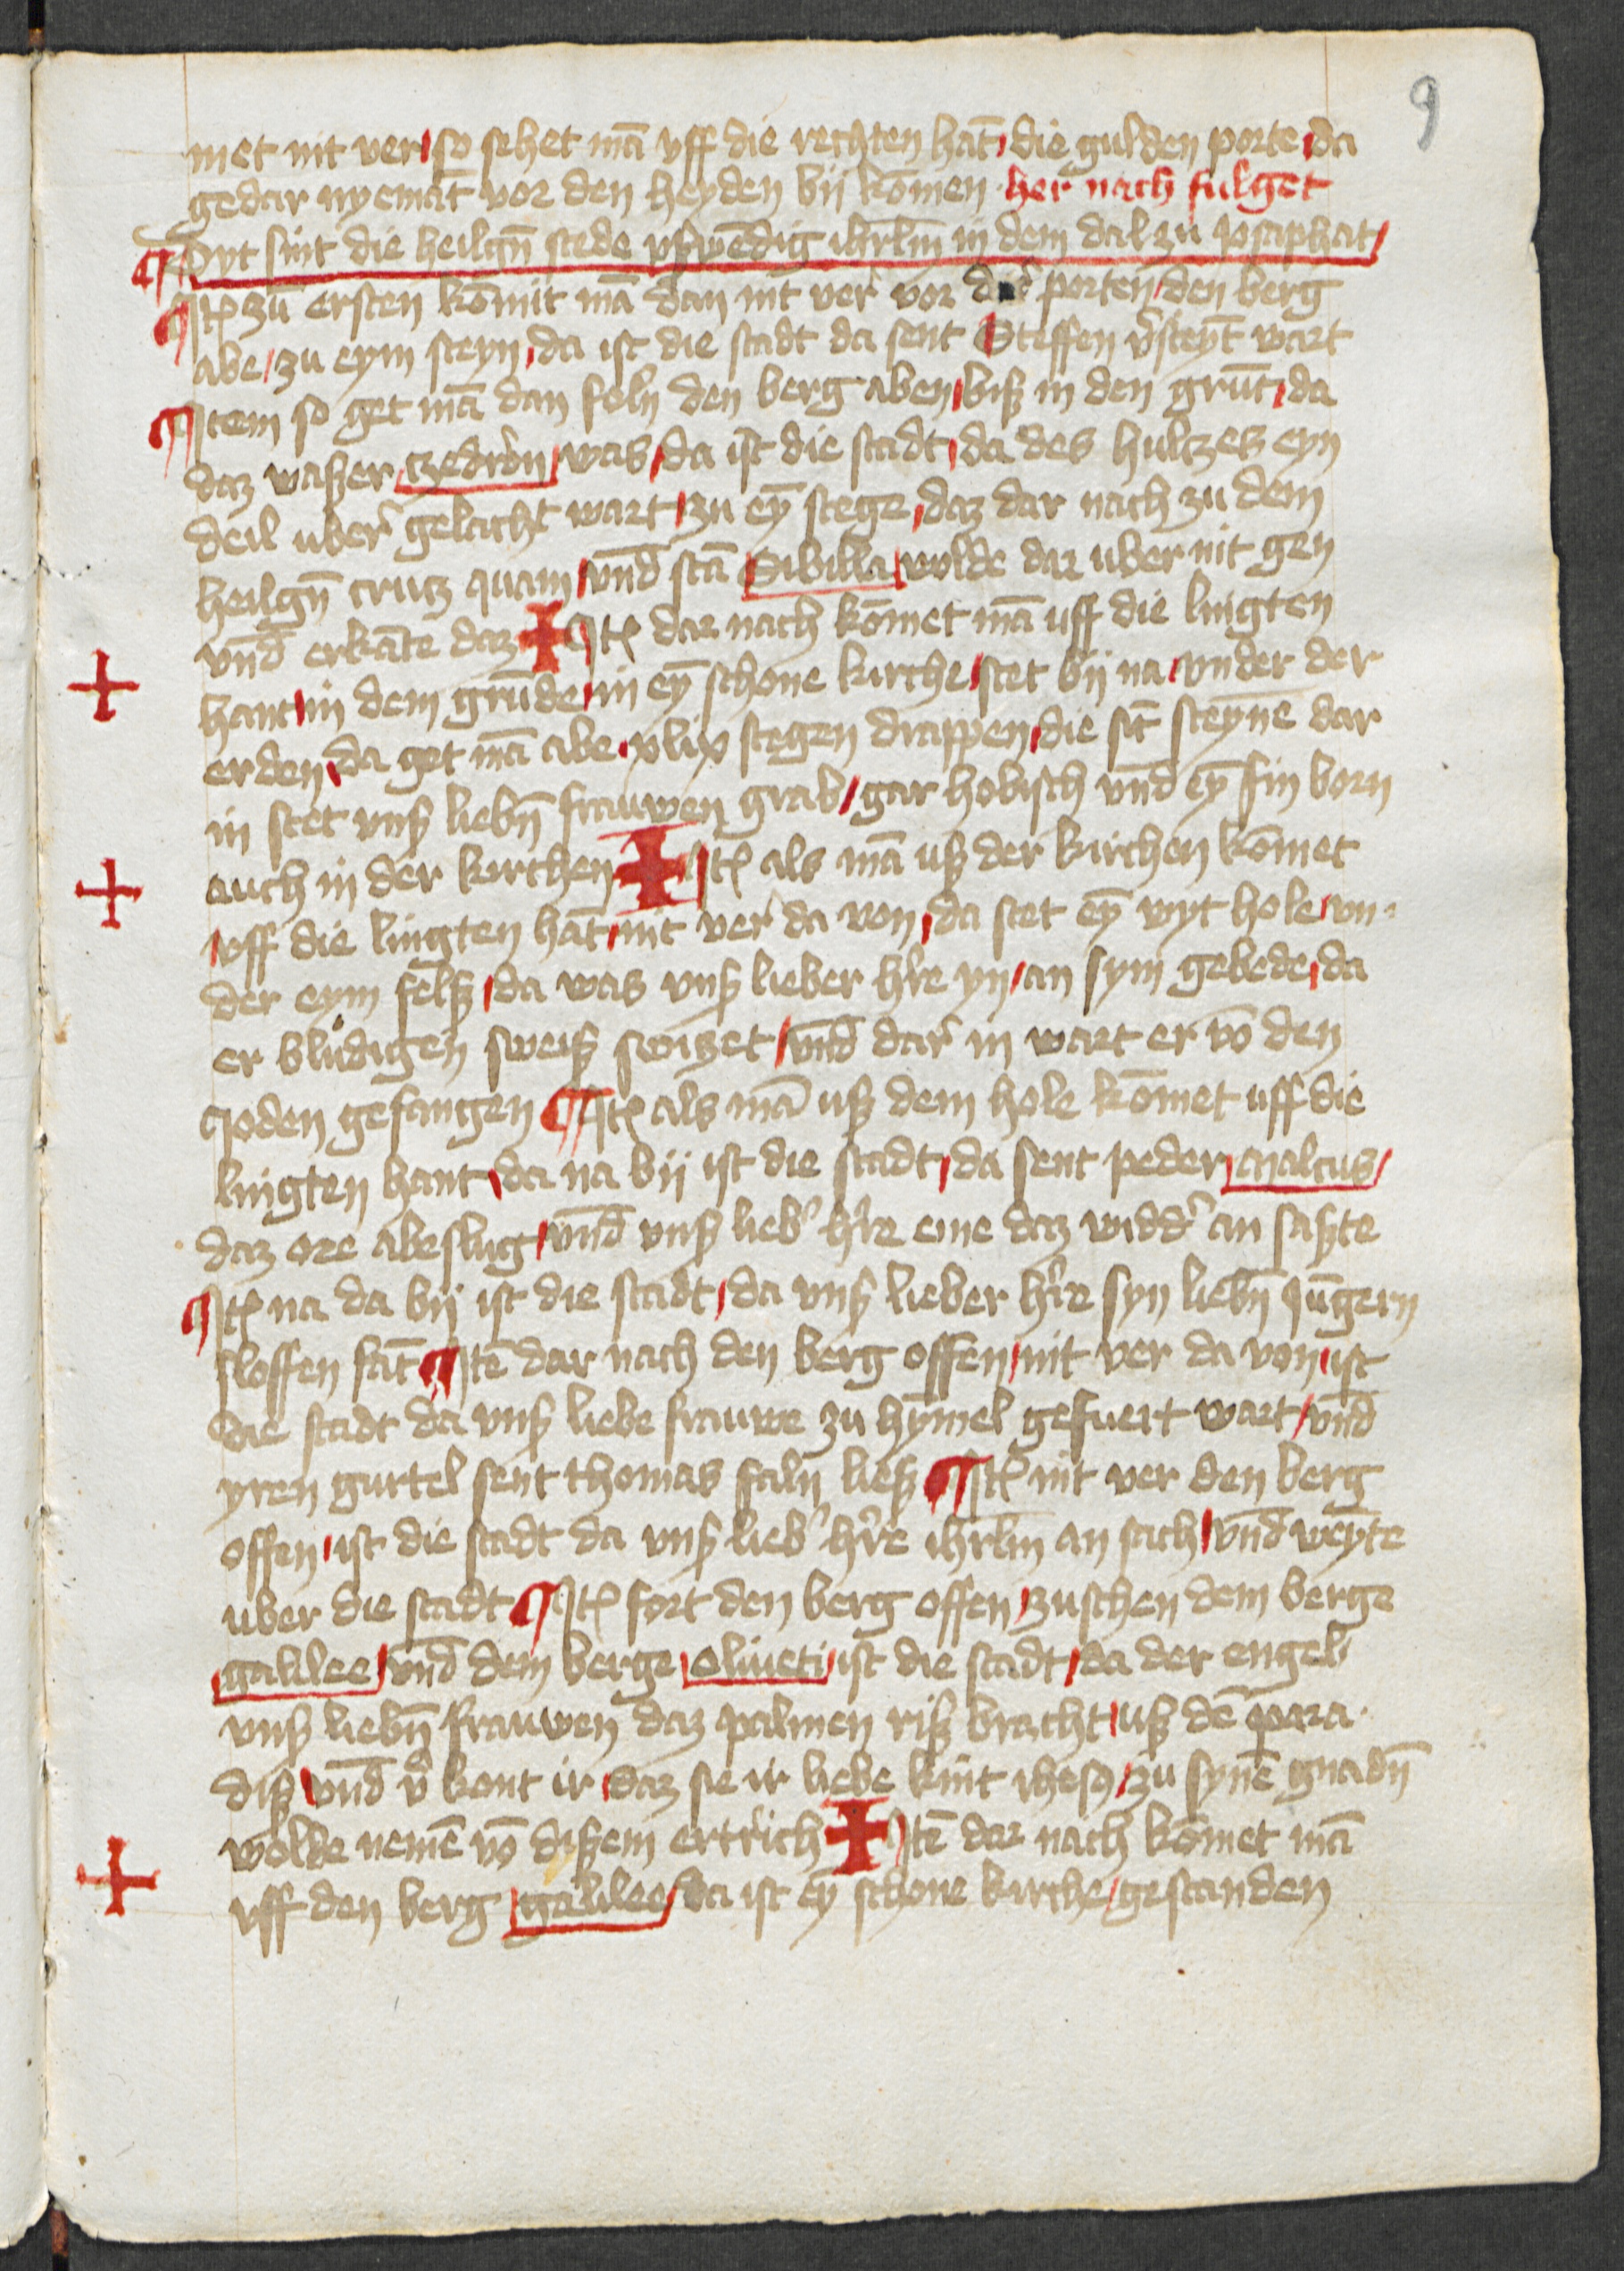 9
met nit ver / so sehet mā vff die rechten hāt / die gulden porte / da
gedar nyemāt vor den heyden bij kōmen · her nach fulget
¶ Dyt sint die heilgn̄ stede vßwēdig ihrlm̄ in dem dal zu Josaphat /
¶ Itꝫ zū ersten kōmit mā dan nit ver vor der porten / den berg
abe / zu eym steyn / da ist die stadt da sent Steffen v̾steyt wart
¶ Item so get mā dan foln den berg aben / biß in den grūt / da
daz waßer tzedron / was / da ist die stadt / da des hultzes eyn
deil uber gelacht wart / zu ey̅ stege / daz dar nach zu dem
heilgn̄ crutz quam / vnd̄ stā Sibilla / wolde dar uber nit gen
vnd̄ erkāte daz ✚ Itꝫ dar nach kōmet mā uff die lingten
hant / in dem grūde / in ey̅ schone kirche / stet bij na / vnder der
erden / da get mā abe · xlix stegen drappen / die sīt steynē dar
in stet vnß liebn̄ frauwen grab / gar hobisch vnd̄ ey̅ fin born
auch in der kirchen ✚ Itꝫ als mā uß der kirchen kōmet
/ vff die lingten hāt / nit ver da von / da stet ey̅ wyt hole / vn-
der eym felß / da was vnß lieber h̾re yn / an sym gebede / da
er bludigen sweiß switzet / vnd̄ dar in wart er vō den
Joden gefangen ¶ Itꝫ als mā uß dem hole kōmet uff die
lingten hant / da na bij ist die stadt / da sent peder / malcus /
daz ore abeslug / vnd̄ vnß lieb̾ h̾re eme daz widd̾ an saßte
¶ Itꝫ na da bij ist die stadt / da vnß lieber h̾re syn liebn̄ Jūgern
sloffen fāt ¶ Itē dar nach den berg offen / nit ver da von / ist
die stadt da vnß liebe frauwe zu hy̅mel gefuert wart / vnd̄
yren gurtel sent thomas faln ließ ¶ Itꝫ nit ver den berg
offen / ist die stadt da vnß lieb̾ h̾re ihrlm̄ an sach / vnd̄ weyte
uber die stadt ¶ Itꝫ fort den berg offen / zuschen dem berge
galilee / vnd̄ dem berge / oliueti / ist die stadt / da der engel
vnß liebn̄ frauwen daz palmen riß bracht / uß dē para-
diß / vnd̄ v̾kont ir / daz sie ir liebe kint ihesꝰ / zu synē gnadn̄
wolde nemē vō dißem ertrich ✚ Itē dar nach kōmet mā
vff den berg / galilee / da ist ey̅ schone kirche / gestanden